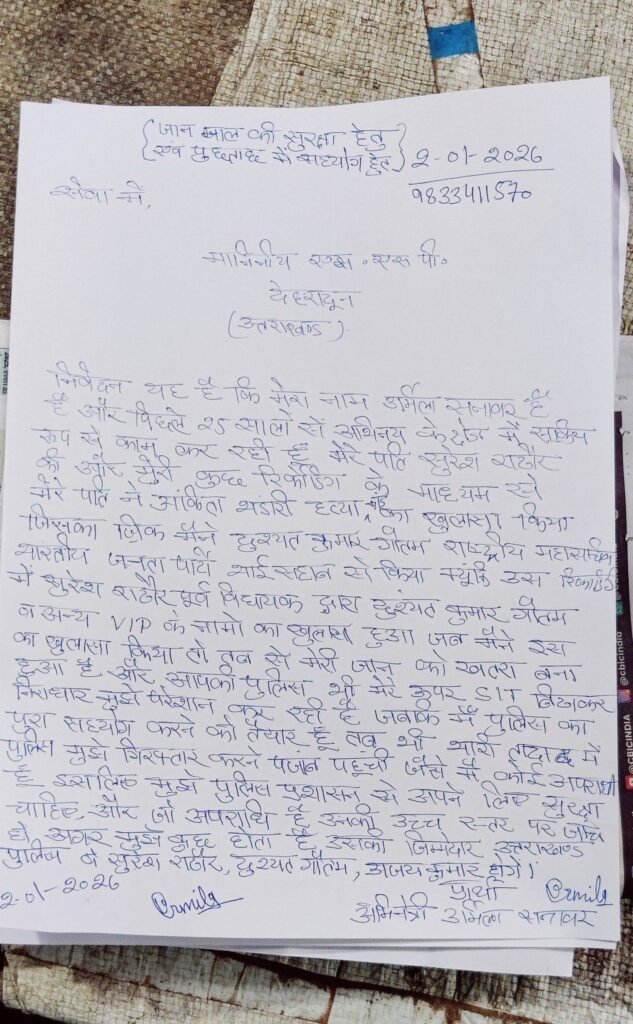 {जान माल की सुरक्षा हेतु
एवं पुछताछ में सहयोग हेतु}
2-01-2026
9833411570
सेवा में,
माननीय एस. एस पी.
देहरादून
(उत्तराखण्ड)
निवेदन यह है कि मेरा नाम उर्मिला सनावर है
है और पिछले 25 सालों से अभिनय के क्षेत्र में सक्रिय
रूप से काम कर रही हूँ मेरे पति सुरेश राठौर
की और मेरी कुछ रिकॉर्डिंग के माध्यम से
मेरे पति ने अंकिता भंडारी हत्याकांड का खुलासा किया
जिसका जिक्र मैंने दुष्यंत कुमार गौतम राष्ट्रीय महासचिव
भारतीय जनता पार्टी भाई साहब से किया क्यूंकि उस रिकॉर्डिंग
में सुरेश राठौर पूर्व विधायक द्वारा दुष्यंत कुमार गौतम
व अन्य VIP के नामों का खुलासा हुआ जब मैंने इस
का खुलासा किया तो तब से मेरी जान को खतरा बना
हुआ है और आपकी पुलिस भी मेरे ऊपर SIT बिठाकर
निराधार मुझे परेशान कर रही है जबकि मैं पुलिस का
पुरा सहयोग करने को तैयार हूँ तब भी भारी तादाद में
पुलिस मुझे गिरफ्तार करने पहुची जैसे मैं कोई अपराधी
हूँ इसलिए मुझे पुलिस प्रशासन से अपने लिए सुरक्षा
चाहिए, और जो अपराधि है उनकी उच्च स्तर पर जाँच
हो अगर मुझे कुछ होता है उसकी जिम्मेदार उत्तराखण्ड
पुलिस व सुरेश राठौर, दुष्यंत गौतम, अजय कुमार होंगे।
प्रार्थी
2-01-2026
Urmila
Urmila
अभिनेत्री उर्मिला सनावर
@cbicindia
@CBICINDIA